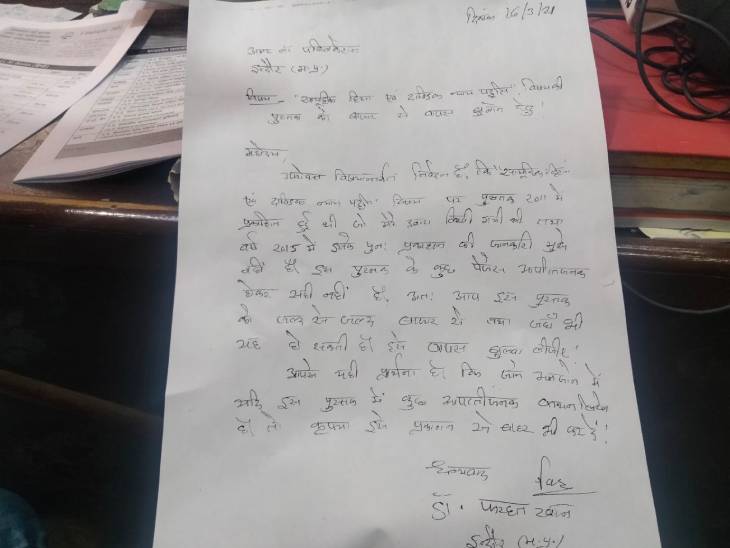 दिनांक 16/3/21
अमर लॉ पब्लिकेशन
इन्दौर (म.प्र.)
विषय :- "सामूहिक हिंसा एवं दाण्डिक न्याय पद्धति" विषयकी
पुस्तक को बाजार से वापस बुलाने हेतु!
महोदय,
उपरोक्त विषयान्तर्गत निवेदन है, कि "सामूहिक हिंसा
एवं दाण्डिक न्याय पद्धति" विषय पर पुस्तक 2011 में
प्रकाशित हुई थी जो मेरे द्वारा लिखी गयी थी तथा
वर्ष 2015 में इसके पुनः प्रकाशन की जानकारी मुझे
नहीं है। इस पुस्तक के कुछ पैजेस आपत्तिजनक
होकर सही नहीं है, अतः आप इस पुस्तक
को जल्द से जल्द बाजार से तथा जहाँ भी
यह हो सकती हो इसे वापस बुलवा लीजिए!
आपसे यही प्रार्थना है। कि जाने अनजाने में
यदि इस पुस्तक में कुछ आपत्तीजनक कथन
हो तो कृपया इसे प्रकाशन से बाहर भी कर दें!
धन्यवाद
डॉ. फरहत खान
इन्दौर (म.प्र.)